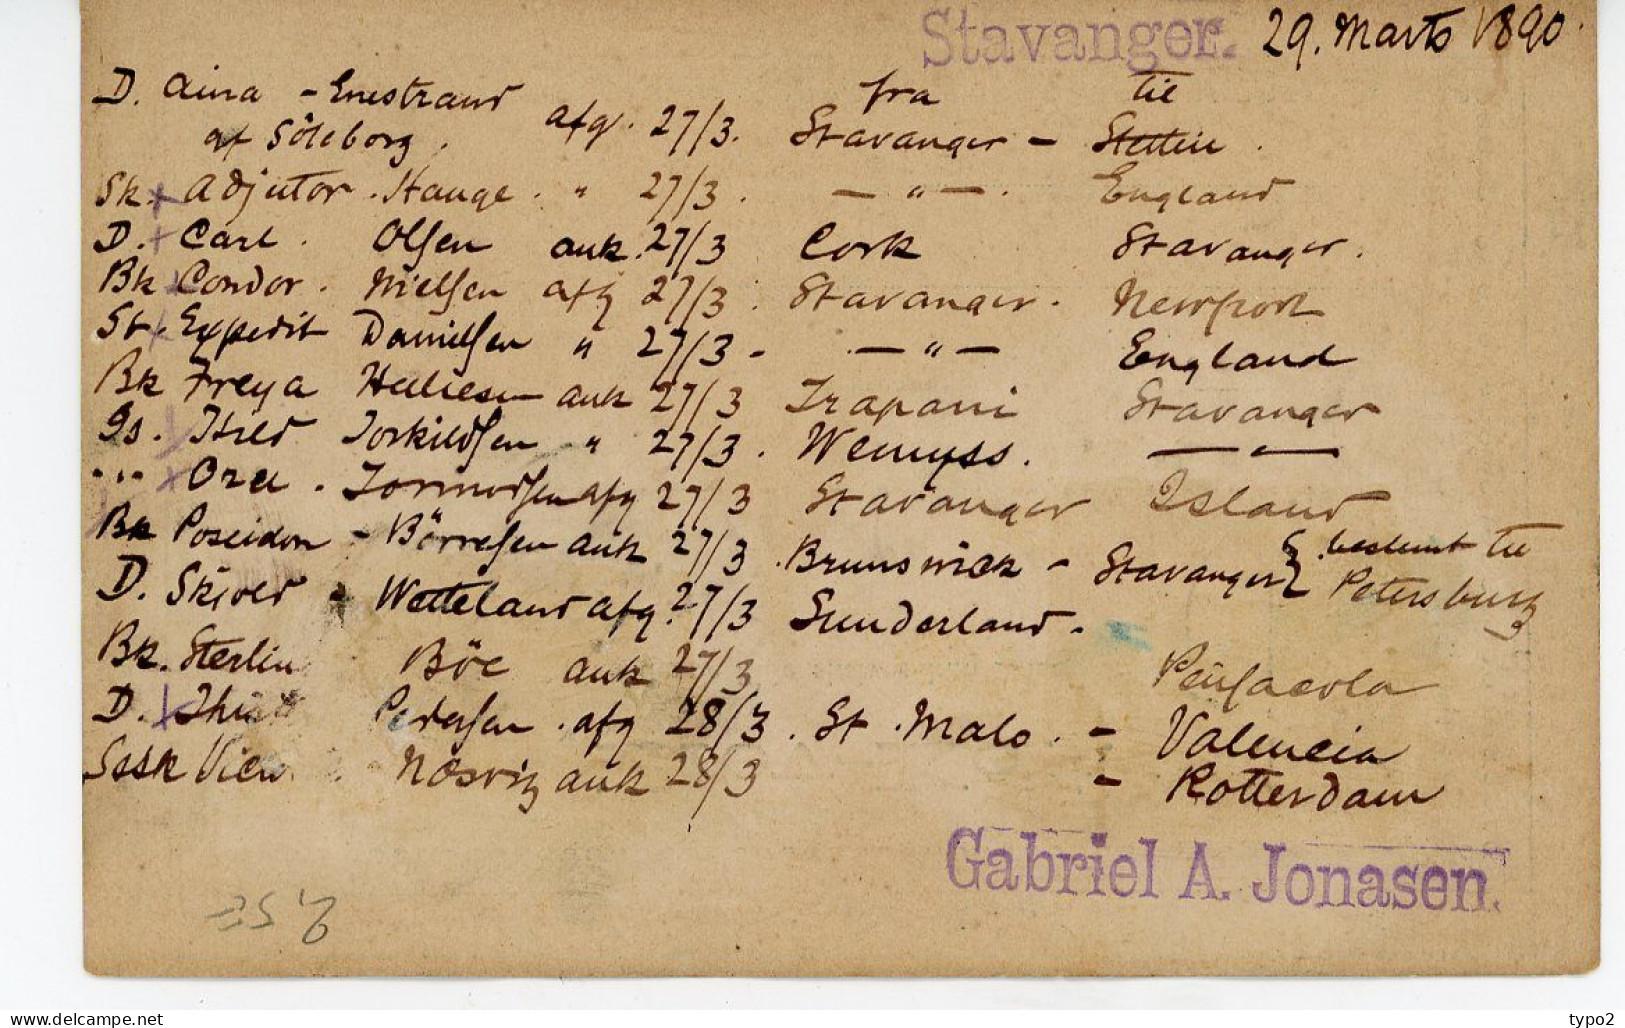 Stavanger. 29. Marts 1890.
fra til
D. Aina - Enestrand afg. 27/3. Stavanger - Stettin.
af Göteborg.
Sk. + Adjutor. Hauge. " 27/3. — " — . England
D. + Carl. Olsen ank. 27/3 Cork Stavanger.
Bk + Condor. Nielsen afg 27/3. Stavanger. Newport
St. + Expedit Danielsen " 27/3 - — " — England
Bk Freya Helliesen ank 27/3 Trapani Stavanger
Gs. Torkildsen " 27/3. Wemyss. — " —
" + . Tormodsen afg 27/3 Stavanger Island
Bk Poseidon - Börresen ank 27/3. Brunswick - Stavanger } bestemt til
Petersburg
D. Skjold - Wetteland afg. 27/3 Sunderland.
Bk. Sterling Böe ank 27/3 Pensacola
D. + Pedersen. afg 28/3. St. Malo. - Valencia
View ank 28/3 - Rotterdam
Gabriel A. Jonasen.
typo2